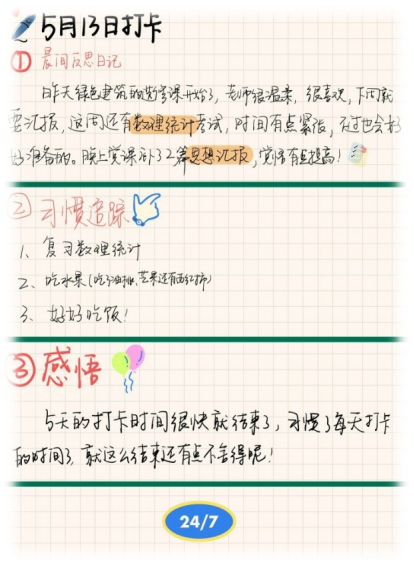 5月13日打卡
① 晨间反思日记
昨天绿色建筑的数字课开始了，老师很温柔，很喜欢，下周就
要汇报，这周还有数理统计考试，时间有点紧张，不过也会好
好准备的。晚上党课补了2篇思想汇报，觉悟有点提高！
② 习惯追踪
1、复习数理统计
2、吃水果(吃了油桃、芒果还有西红柿)
3、好好吃饭！
③ 感悟
5天的打卡时间很快就结束了，习惯了每天打卡
的时间了，就这么结束还有点不舍得呢！
24/7